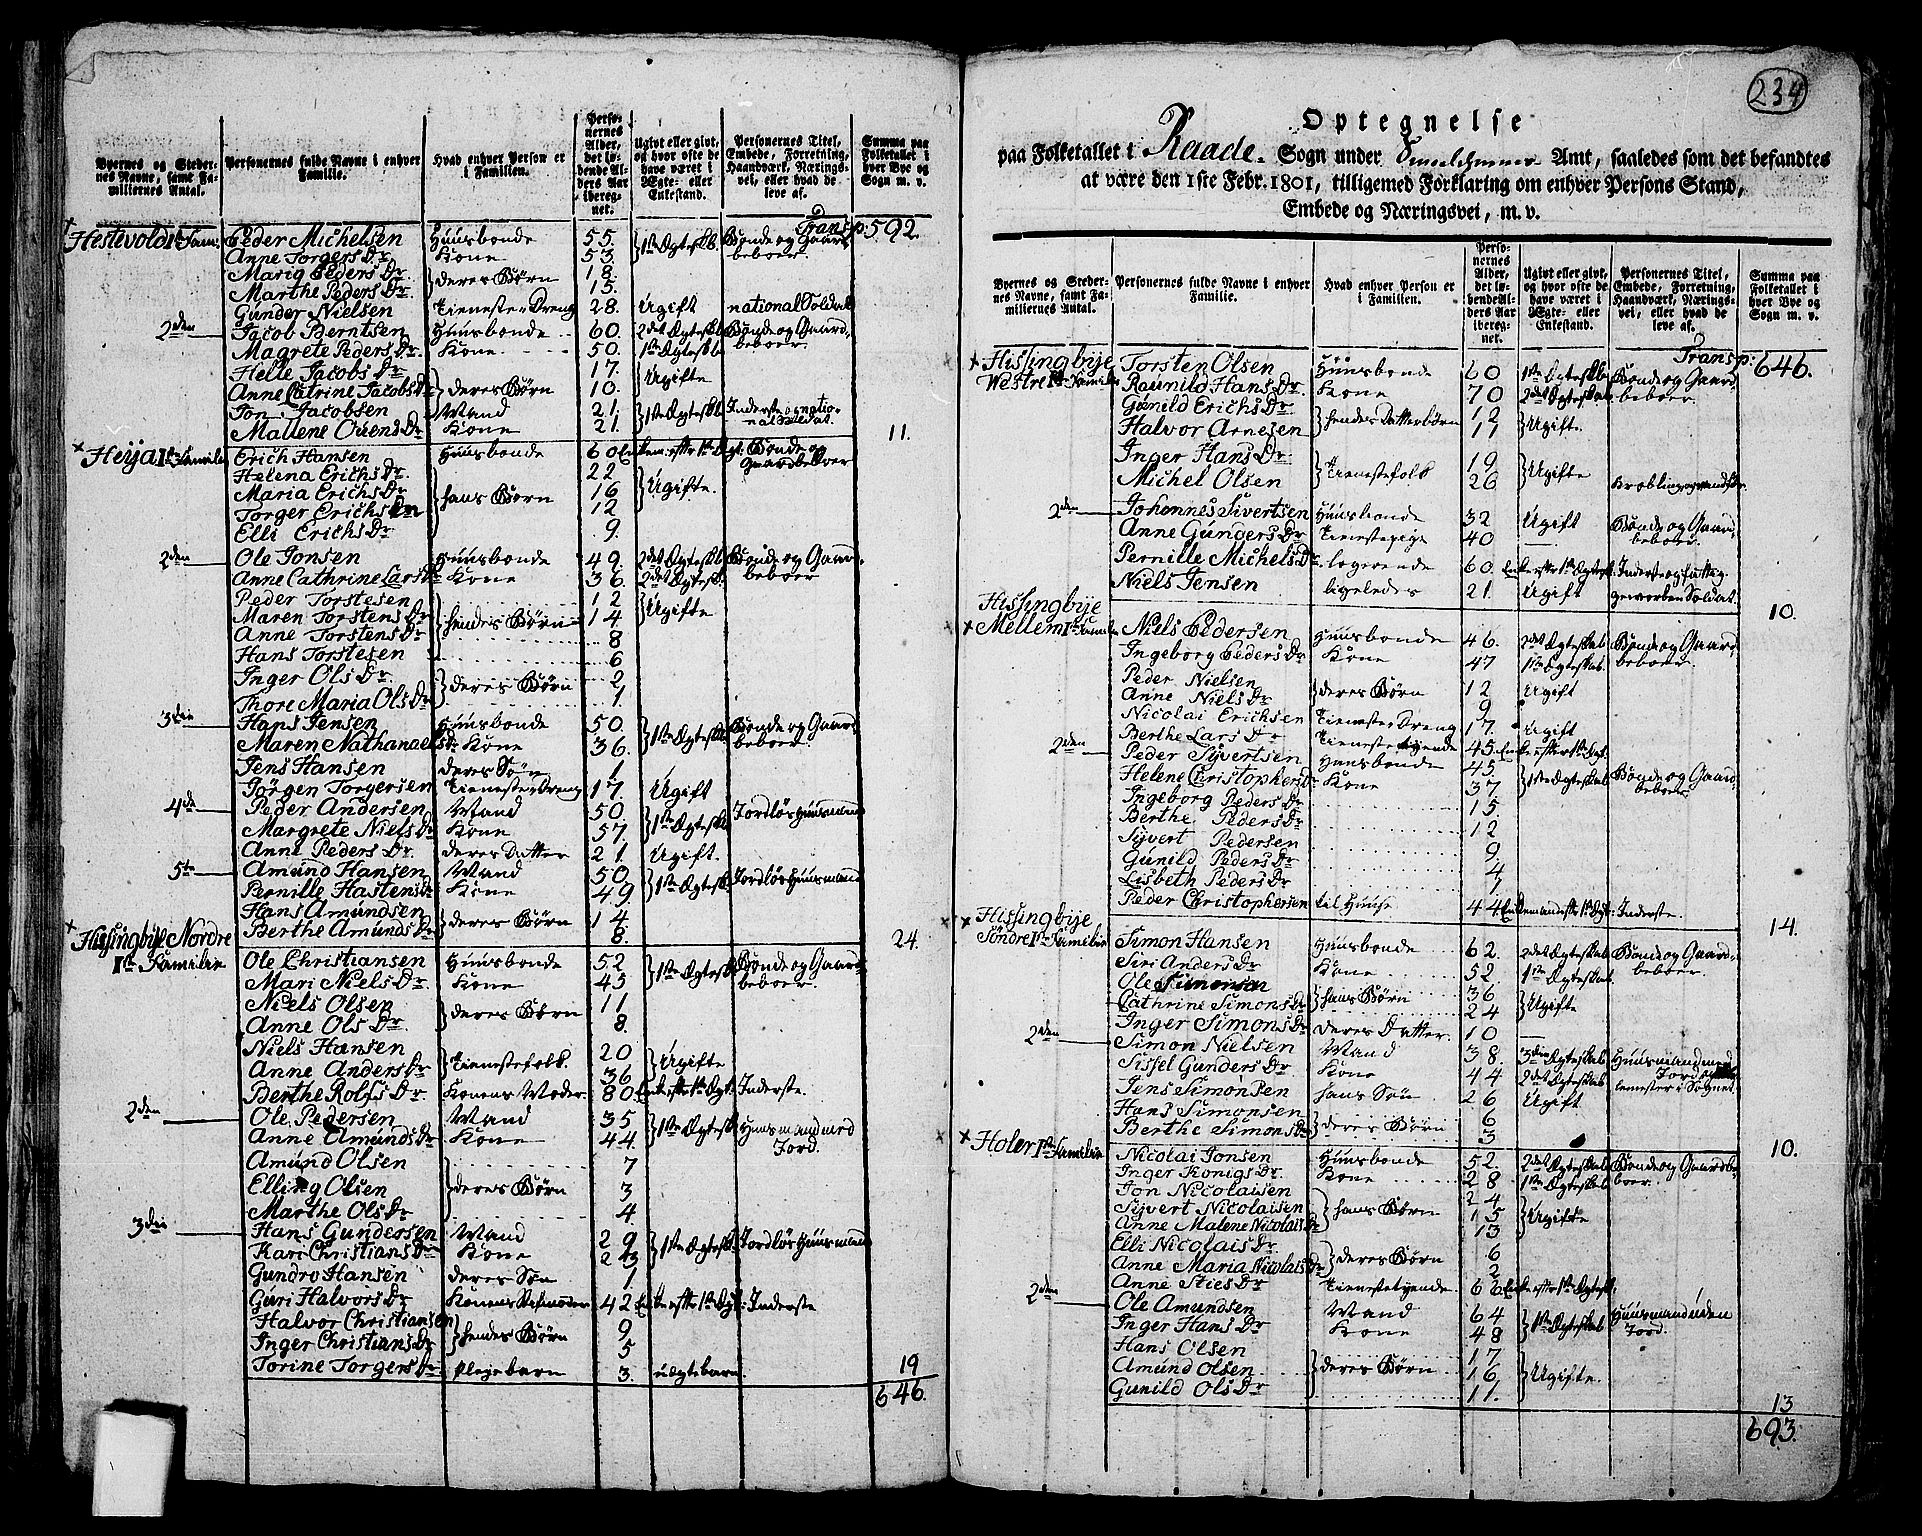 Byernes og Steder-
nes Navne, samt Fa-
miliernes Antal.
Personernes fulde Navne i enhver
Familie.
Hvad enhver Person er
i Familien.
Perso-
nernes
Alder,
det lø-
bende Al-
ders Aar
iberег-
net.
Ugivt eller givt,
og hvor ofte de
have været i
Ægte- eller
Enkestand.
Personernes Titel,
Embede, Forretning,
Haandværk, Nærings-
vei, eller hvad de
leve af.
Summa paa
Folketallet i
hver Bye og
Sogn m. v.
Transp: 592.
Hestevold 1ste Fam: Peder Michelsen Huusbonde 55. 1ste Ægteskb. Bonde og Gaard-
Anne Torgers Dr Kone 53. beboer
Marig Peders Dr. deres Børn 18.
Marthe Peders Dr. 15.
Gunder Nielsen Tieneste Dreng 28. Ugift national Soldat
2den Jacob Berntsen Huusbonde 60. 2det Ægteskb Bonde og Gaard-
Magrete Peders Dr Kone 50. 1ste Ægteskb beboer
Helle Jacobs Dr 17. Ugifte
Anne Catrine Jacobs Dr deres Børn 10.
Jon Jacobsen Mand 21. 1ste Ægteskb Inderste og natio-
Mallene Ouens Dr Kone 21. nal Soldat. 11.
Heija 1ste Familie Erich Hansen Huusbonde 60 Enkem: efter 1ste Ægt: Bonde og
Helena Erichs Dr. 22 Gaardbeboer
Maria Erichs Dr hans Børn 16 Ugifte.
Torger Erichsen 12
Elli Erichs Dr 9.
2den Ole Jonsen Huusbonde 49. 2det Ægteskb Bonde og Gaard-
Anne Cathrine Lars Dr Kone 36. 2det Ægtesk. beboer
Peder Torstesen 12 Ugifte
Maren Torstens Dr hendes Børn 14
Anne Torstens Dr 8
Hans Torstesen 6
Inger Ols Dr. deres Børn 2
Thore Maria Ols Dr 1.
3die Hans Jensen Huusbonde 50. 1ste Ægteskb Bonde og Gaard-
Maren Nathanaels Dr Kone 36. beboer.
Jens Hansen deres Søn 1
Jørgen Torgersen Tieneste Dreng 17. Ugift
4de Peder Andersen Mand 50. 1ste Ægteskb Jordløs Huusmand
Margrete Niels Dr Kone 57.
Anne Peders Dr. deres Datter 21. Ugift.
5te Amund Hansen Mand 50 1ste Ægtesk. Jordløs Huusmand
Pernille Hastens Dr Kone 49.
Hans Amundsen deres Børn 14
Berthe Amunds Dr 8. 24.
Hissingbye Nordre
1ste Familie Ole Christiansen Huusbonde 52 1ste Ægteskb Bonde og Gaard-
Mari Niels Dr. Kone 45 beboer.
Niels Olsen deres Børn 11
Anne Ols Dr. 8.
Niels Hansen Tienestefolk. 20 Ugifte
Anne Anders Dr 36
Berthe Rolfs Dr Konens Moder 80. Enke efter 1ste Ægt: Inderste.
2den Ole Pedersen Mand 35 1ste Ægtesk: Huusmand med
Anne Amunds Dr Kone 44. Jord.
Amund Olsen 7
Elling Olsen deres Børn 3
Marthe Ols Dr 4.
3die Hans Gundersen Mand 29 1ste Ægtesk: Jordløs Huusmand
Kari Christians Dr Kone 23
Gundro Hansen deres Søn 1
Guri Halvors Dr Konens Stifmoder 42 Enke efter 1ste Ægt: Inderste
Halvor Christiansen hendes Børn 9
Inger Christians Dr 5
Torine Torgers Dr plejebarn 3. uægtebarn. 19
646.
234
Optegnelse
paa Folketallet i Raade. Sogn under Smaalehnenes Amt, saaledes som det befandtes
at være den 1ste Febr. 1801, tilligemed Forklaring om enhver Persons Stand,
Embede og Næringsvei, m. v.
Byernes og Steder-
nes Navne, samt Fa-
miliernes Antal.
Personernes fulde Navne i enhver
Familie.
Hvad enhver Person er
i Familien.
Perso-
nernes
Alder,
det lø-
bende Al-
ders Aar
ibereg-
net.
Ugivt eller givt,
og hvor ofte de
have været i
Ægte- eller
Enkestand.
Personernes Titel,
Embede, Forretning,
Haandværk, Nærings-
vei, eller hvad de
leve af.
Summa paa
Folketallet i
hver Bye og
Sogn m. v.
Transp: 646.
Hissingbye Torsten Olsen Huusbonde 60 1ste Ægteskb Bonde og Gaard-
Westre 1ste Familie Raunild Hans Dr. Kone 70 2det Ægteskab beboer.
Gunild Erichs Dr. hendes Datterbørn 12 Ugift.
Halvor Arnesen 11
Inger Hans Dr. Tienestefolk 19 Ugifte
Michel Olsen 26
2den Johannes Sivertsen Huusbonde 32 Ugift Bonde og Gaard-
Anne Gunders Dr: Tienestepige 40 beboer.
Pernille Michels Dr logerende 60. Enke efter 1ste Ægtesk: Inderste og fattig.
Niels Jensen ligeledes 21. Ugift geworben Soldat. 10.
Hissingbye
Mellem 1ste Familie Niels Pedersen Huusbonde 46. 2det Ægteskab Bonde og Gaard-
Ingeborg Peders Dr Kone 47 1ste Ægteskab beboer.
Peder Nielsen deres Børn 12 Ugift
Anne Niels Dr 9
Nicolai Erichsen Tieneste Dreng 17. Ugift
Berthe Lars Dr Tienestetyende 45. Enke efter 1ste Ægt.
2den Peder Syvertsen Huusbonde 45. 1ste Ægteskab Bonde og Gaard-
Helene Christophers Dr Kone 37 beboer
Ingeborg Peders Dr 15.
Berthe Peders Dr 12
Syvert Pedersen 9.
Gunild Peders Dr 4
Lisbeth Peders Dr 1
Peder Christophersen til Huuse 44 Enkemand efter 1ste Ægt: Inderste. 14.
Hissingbye
Søndre 1ste Familie Simon Hansen Huusbonde 62. 2det Ægteskab Bonde og Gaard-
Siri Anders Dr Kone 52. 1ste Ægteskab beboer.
Ole Simonsen hans Børn 36 Ugifte
Cathrine Simons Dr 24
Inger Simons Dr deres Datter 10
2den Simon Nielsen Mand 38. 3die Ægteskab Huusmand med
Sissel Gunders Dr Kone 44 2det Ægteskab Jord
Jens Simonsen hans Søn 26 Ugift
Hans Simonsen deres Børn 6
Berthe Simons Dr 3 10.
Holer 1ste Familie Nicolai Jonsen Huusbonde 52. 2det Ægteskab Bonde og Gaardbe-
Inger Konigs Dr. Kone 28 1ste Ægteskab boer.
Jon Nicolaisen 24
Syvert Nicolaisen hans Børn 15 Ugifte
Anne Malene Nicolais Dr 13
Elli Nicolais Dr. deres Børn 6
Anne Maria Nicolais Dr 2
Anne Sties Dr Tienestetyende 66 Enke efter 1ste Ægtesk.
2den Ole Amundsen Mand 64 1ste Ægteskab Huusmand uden
Inger Hans Dr Kone 48 Jord.
Hans Olsen 17
Amund Olsen deres Børn 16 Ugifte.
Gunild Ols Dr 11. 13
693.